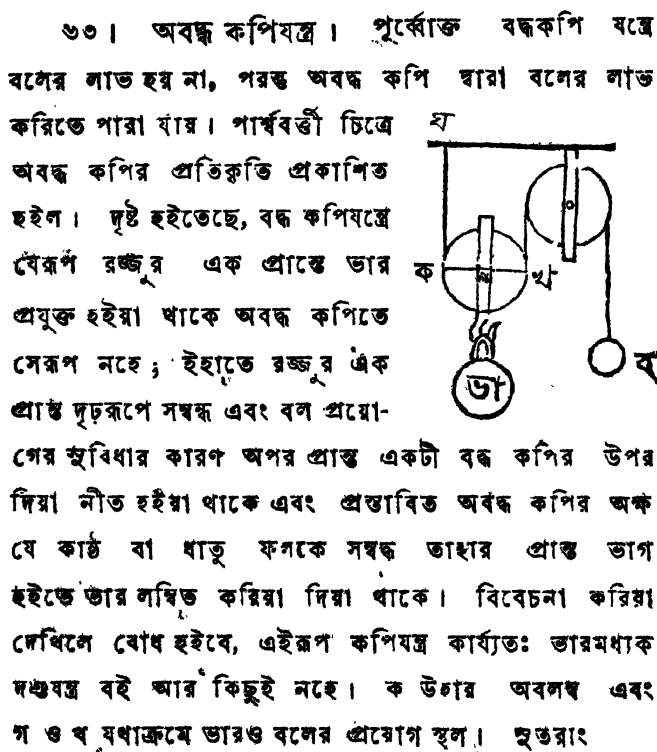 ৬৩। অবদ্ধ কপিযন্ত্র। পূর্ব্বোক্ত বদ্ধকপি যন্ত্রে
বলের লাভ হয় না, পরন্তু অবদ্ধ কপি দ্বারা বলের লাভ
করিতে পারা যায়। পার্শ্ববর্ত্তী চিত্রে
অবদ্ধ কপির প্রতিকৃতি প্রকাশিত
হইল। দৃষ্ট হইতেছে, বদ্ধ কপিযন্ত্রে
যেরূপ রজ্জুর এক প্রান্তে ভার
প্রযুক্ত হইয়া থাকে অবদ্ধ কপিতে
সেরূপ নহে; ইহাতে রজ্জুর এক
প্রান্ত দৃঢ়রূপে সম্বদ্ধ এবং বল প্রয়ো-
গের সুবিধার কারণ অপর প্রান্ত একটী বদ্ধ কপির উপর
দিয়া নীত হইয়া থাকে এবং প্রস্তাবিত অবদ্ধ কপির অক্ষ
যে কাষ্ঠ বা ধাতু ফলকে সম্বদ্ধ তাহার প্রান্ত ভাগ
হইতে ভার লম্বিত করিয়া দিয়া থাকে। বিবেচনা করিয়া
দেখিলে বোধ হইবে, এইরূপ কপিযন্ত্র কার্য্যতঃ ভারমধ্যক
দণ্ডযন্ত্র বই আর কিছুই নহে। ক উহার অবলম্ব এবং
গ ও খ যথাক্রমে ভার ও বলের প্রয়োগ স্থল। সুতরাং
ঘ
ক
খ
ভা
ব